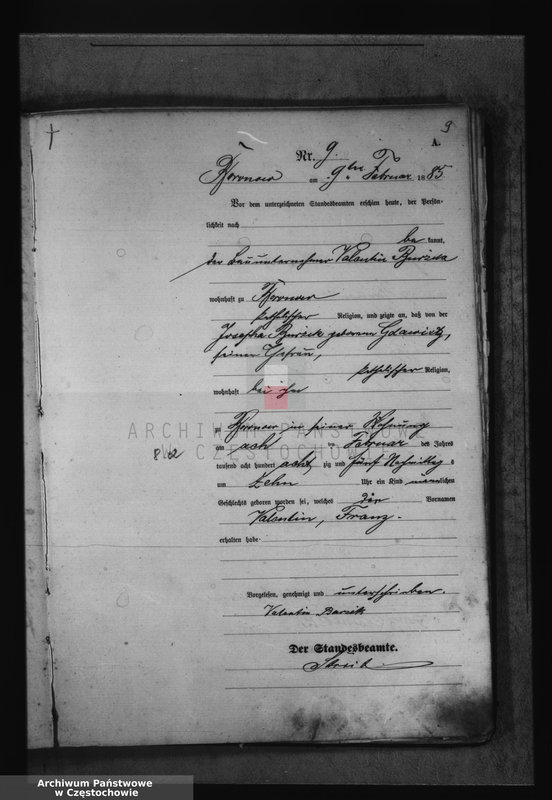 9
A.
Nr. 9.
am 9ten Februar 1885
Vor dem unterzeichneten Standesbeamten erschien heute, der Persön-
lichkeit nach
bekannt,
der Bauunternehmer Valentin
wohnhaft zu
katholischer Religion, und zeigte an, daß von der
Josepha geborenen
seiner Ehefrau,
katholischer Religion,
wohnhaft bei ihm
ARCHIWUM PAŃSTWOWE
W CZĘSTOCHOWIE
zu in seiner Wohnung
am acht ten Februar des Jahres
tausend acht hundert achtzig und fünf Nachmittags
um zehn Uhr ein Kind männlichen
Geschlechts geboren worden sei, welches die Vornamen
Valentin, Franz.
erhalten habe.
Vorgelesen, genehmigt und unterschrieben.
Valentin
Der Standesbeamte.
Archiwum Państwowe
w Częstochowie